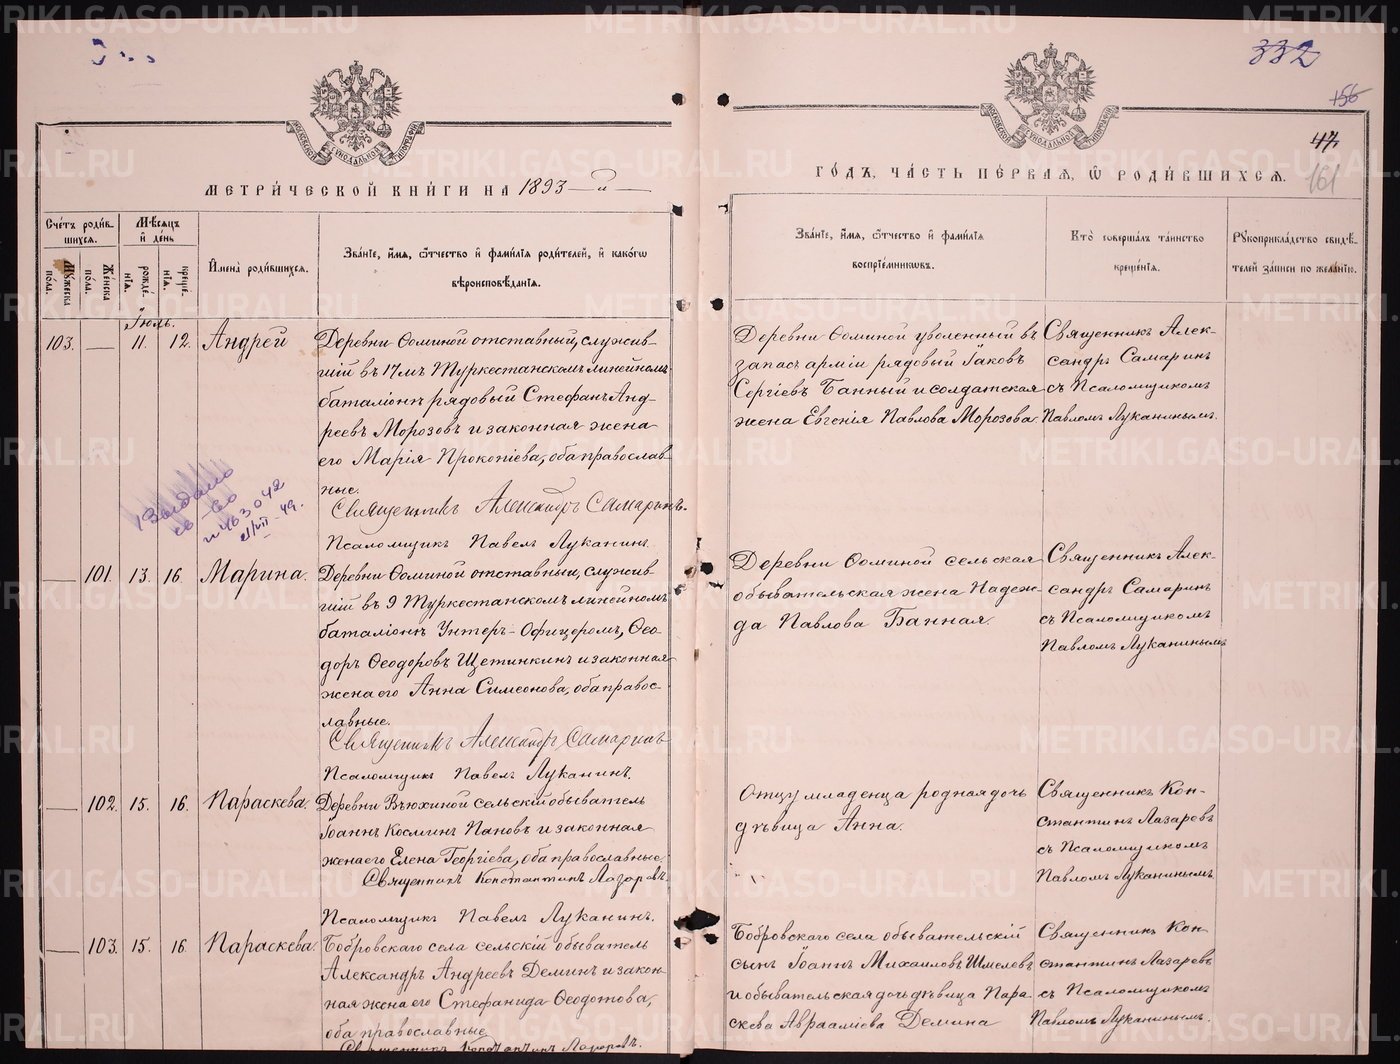 332
156
47
161
МОСКОВСКОЙ СУНОДАЛЬНОЙ ТИПОГРАФІИ
МОСКОВСКОЙ СУНОДАЛЬНОЙ ТИПОГРАФІИ
МЕТРИ́ЧЕСКОЙ КНИ́ГИ НА 1893 — й —
ГО́ДЪ, ЧА́СТЬ ПЕ́РВАЯ, Ѡ РОДИ́ВШИХСЯ.
Сче́тъ роди́в-
шихся.
Мѣ́сяцъ
и҆ де́нь
Му́жеска
по́ла.
Же́нска
по́ла.
рожде́-
нїя.
креще́-
нїя.
И҆мена̀ роди́вшихся.
Зва́нїе, и҆́мя, ѻ҆́тчество и҆ фами́лїя роди́телей, и҆ како́гѡ
вѣроисповѣ́данїя.
Зва́нїе, и҆́мя, ѻ҆́тчество и҆ фами́лїя
воспрїе́мниковъ.
Кто̀ соверша́лъ та́инство
креще́нїя.
Рꙋкоприкла́дство свидѣ́-
телей за́писи по жела́нїю.
Іюль.
103. — 11. 12. Андрей
Деревни Ѳоминой отставный, служив-
шій въ 17мъ Туркестанскомъ линейномъ
баталіонѣ рядовый Стефанъ Анд-
реевъ Морозовъ и законная жена
его Марія Прокопіева, оба православ-
ные.
Священникъ Александръ Самаринъ.
Псаломщикъ Павелъ Луканинъ.
Деревни Ѳоминой уволенный въ
запасъ арміи рядовый Іаковъ
Сергіевъ Банный и солдатская
жена Евгенія Павлова Морозова
Священникъ Алек-
сандръ Самаринъ
съ Псаломщикомъ
Павломъ Луканинымъ.
Выдано
св-во
№ 463042
21/VII-49.
— 101. 13. 16. Марина.
Деревни Ѳоминой отставный, служив-
шій въ 9 Туркестанскомъ линейномъ
баталіонѣ Унтеръ-Офицеромъ, Ѳео-
доръ Ѳеодоровъ Щетинкинъ и законная
жена его Анна Симеонова, оба правос-
лавные.
Священникъ Александръ Самаринъ
Псаломщикъ Павелъ Луканинъ.
Деревни Ѳоминой сельская
обывательская жена Надеж-
да Павлова Банная.
Священникъ Алек-
сандръ Самаринъ
съ Псаломщикомъ
Павломъ Луканинымъ
— 102. 15. 16. Параскева.
Деревни Вьюхиной сельскій обыватель
Іоаннъ Косминъ Пановъ и законная
жена его Елена Георгіева, оба православные.
Священникъ Константинъ Лазаревъ.
Псаломщикъ Павелъ Луканинъ.
Отцу младенца родная дочь
дѣвица Анна.
Священникъ Кон-
стантинъ Лазаревъ
съ Псаломщикомъ
Павломъ Луканинымъ.
— 103. 15. 16 Параскева.
Бобровскаго села сельскій обыватель
Александръ Андреевъ Деминъ и закон-
ная жена его Стефанида Ѳеодотова,
оба православные.
Священникъ Константинъ Лазаревъ.
Бобровскаго села обывательскій
сынъ Іоаннъ Михаиловъ Шмелевъ
и обывательская дочь дѣвица Пара-
скева Авраміева Демина
Священникъ Кон-
стантинъ Лазаревъ
съ Псаломщикомъ
Павломъ Луканинымъ.
METRIKI.GASO-URAL.RU